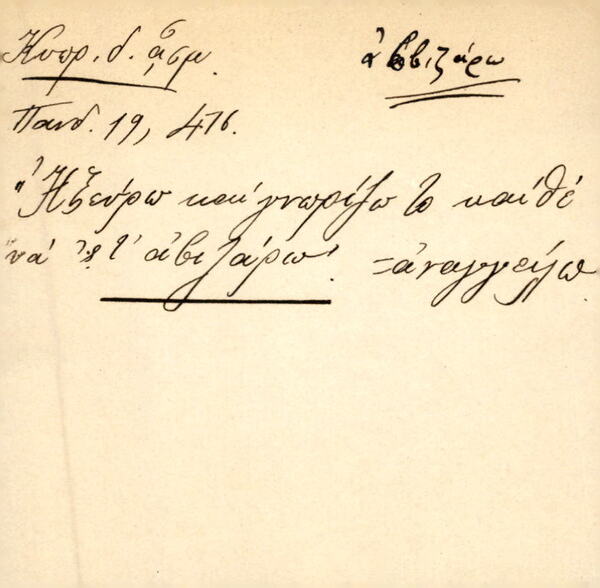 Κυπρ. δ. ᾆσμ. ἀβιζάρω
Πανδ. 19, 476.
"Ἠξεύρω καὶ γνωρίζω το καὶ θὲ
νὰ τ' ἀβιζάρω" =ἀναγγείλω